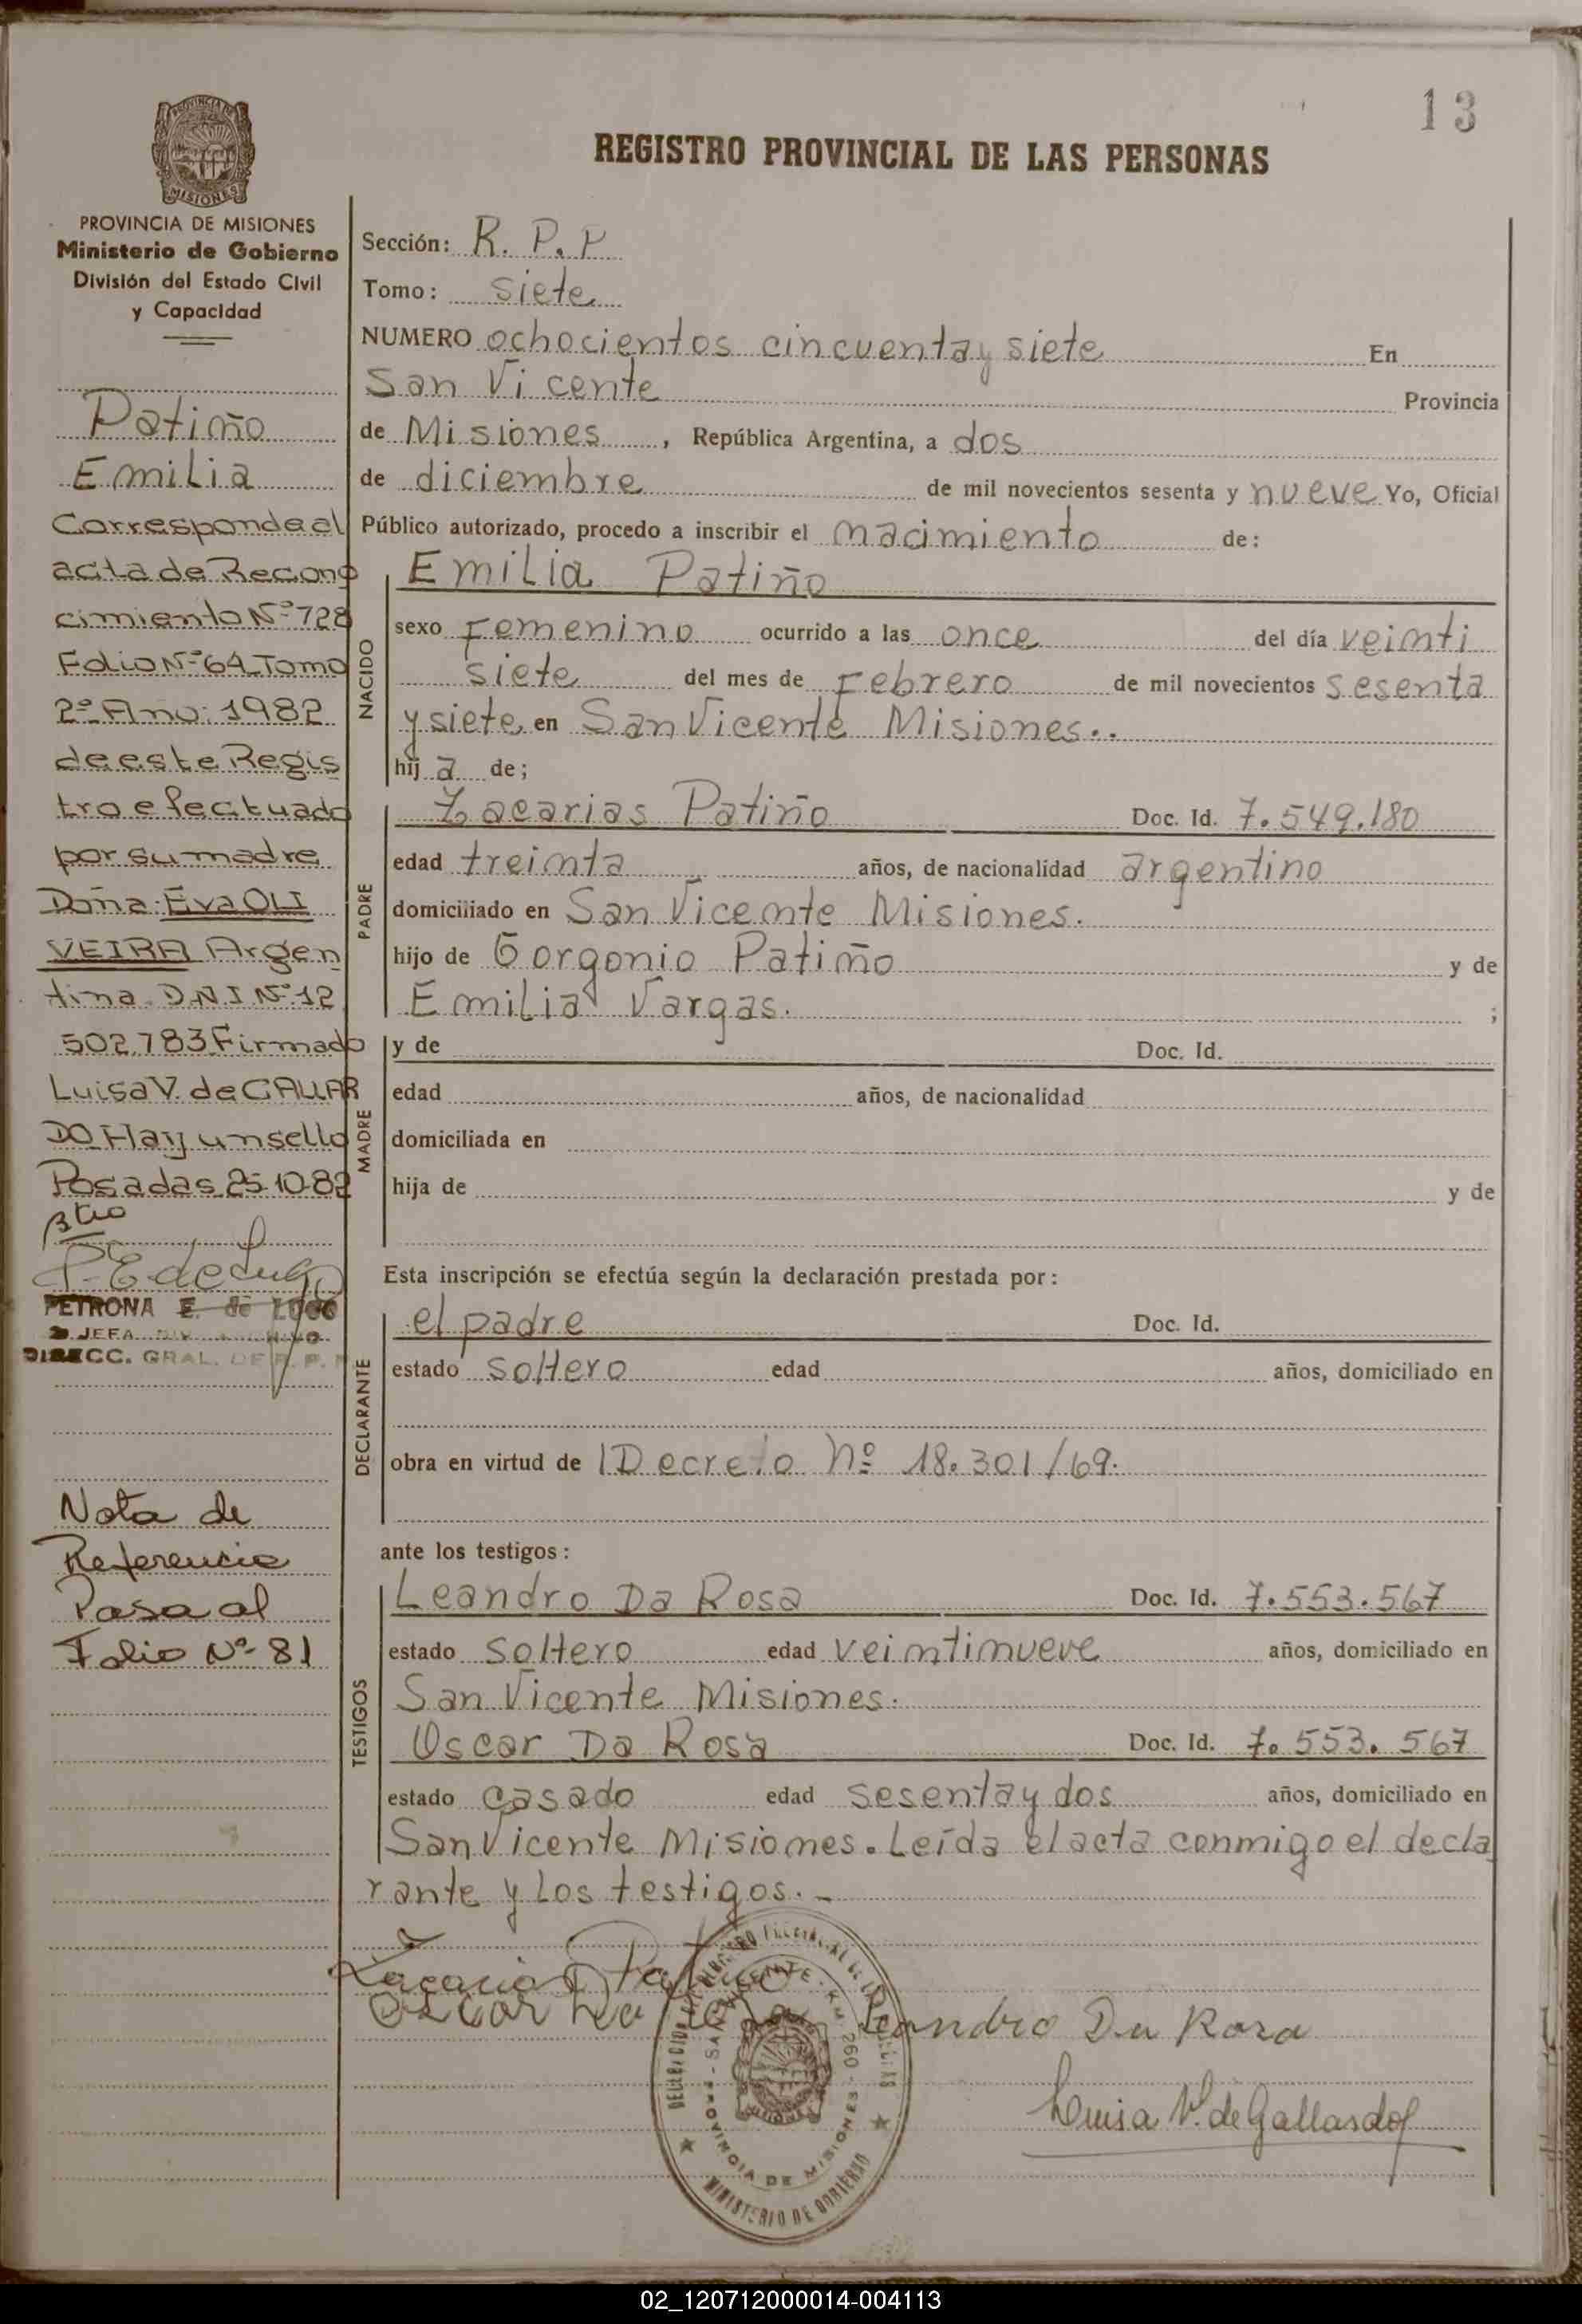 13
REGISTRO PROVINCIAL DE LAS PERSONAS
PROVINCIA DE MISIONES
MISIONES
PROVINCIA DE MISIONES
Ministerio de Gobierno
División del Estado Civil
y Capacidad
Patiño
Emilia
Corresponde al
acta de Recono
cimiento Nº 728
Folio Nº 64 Tomo
2º Año: 1982
de este Regis
tro efectuado
por su madre
Doña: Eva OLI
VEIRA Argen
tina D.N.I. Nº 12
502.783 Firmado
Luisa V. de GALLAR
DO Hay un sello
Posadas 25-10-82
PETRONA E. de
JEFA
DIRECC. GRAL. DE R. P. P.
Nota de
Referencia
Pasa al
Folio Nº 81
Sección: R. P. P
Tomo: siete
NUMERO ochocientos cincuenta y siete En
San Vicente Provincia
de Misiones, República Argentina, a dos
de diciembre de mil novecientos sesenta y nueve Yo, Oficial
Público autorizado, procedo a inscribir el nacimiento de:
NACIDO
Emilia Patiño
sexo Femenino ocurrido a las once del día veinti
siete del mes de Febrero de mil novecientos sesenta
y siete en San Vicente Misiones..
hij a de;
PADRE
Zacarias Patiño Doc. Id. 7.549.180
edad treinta años, de nacionalidad argentino
domiciliado en San Vicente Misiones.
hijo de Gorgonio Patiño y de
Emilia Vargas. ;
MADRE
y de Doc. Id.
edad años, de nacionalidad
domiciliada en
hija de y de
Esta inscripción se efectúa según la declaración prestada por:
DECLARANTE
el padre Doc. Id.
estado soltero edad años, domiciliado en
obra en virtud de Decreto Nº 18.301/69.
ante los testigos:
TESTIGOS
Leandro Da Rosa Doc. Id. 7.553.567
estado soltero edad veintinueve años, domiciliado en
San Vicente Misiones.
Oscar Da Rosa Doc. Id. 7.553.567
estado casado edad sesenta y dos años, domiciliado en
San Vicente Misiones. Leída el acta conmigo el decla
rante y los testigos.-
Zacarias Patiño
Oscar Da Rosa
Leandro Da Rosa
Luisa V. de Gallardo
SAN VICENTE - KM. 260 -
PROVINCIA DE MISIONES
MINISTERIO DE GOBIERNO
02_120712000014-004113